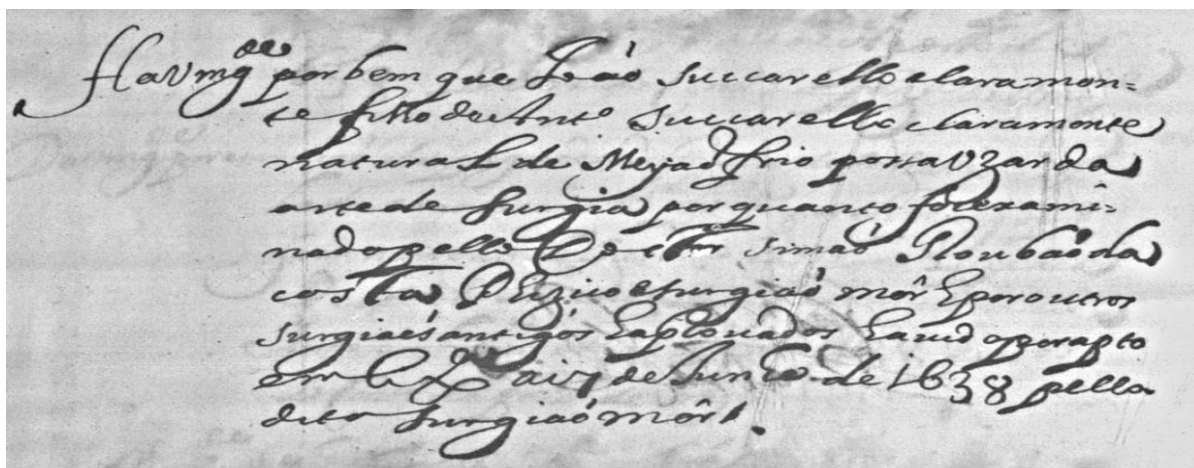 Ha v mg.de por bem que João Succarello claramon-
te filho de Ant.o Succarello claramonte
natural de Meyaõ frio possa vzar da
arte de surgia por quanto foi exami-
nado pello Doctor simaõ Roubaõ da
costa Phizico e surgiaõ mór e por outros
surgiaẽs antigos e aprouados e auido por apto
em Lx.a a i9 de Junho de 1638 pello
dito surgiaõ môr.